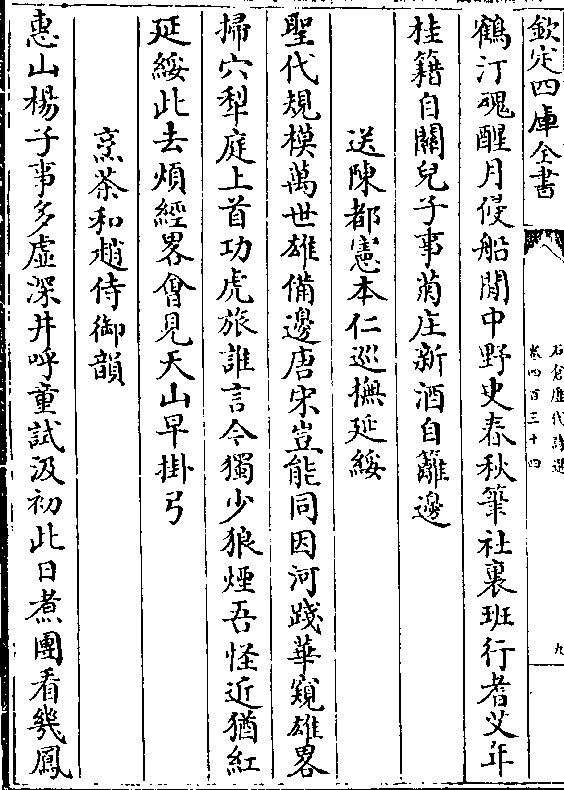 欽定四庫全書
石倉歷代詩選
卷四百三十四
九
鶴汀魂醒月侵船閒中野史春秋筆社裏班行耆艾年
桂籍自關兒子事菊庄新酒自籬邊
送陳都憲本仁巡撫延綏
聖代規模萬世雄備邊唐宋豈能同因河踐華窺雄畧
掃穴犁庭上首功虎旅誰言今獨少狼煙吾怪近猶紅
延綏此去煩經畧會見天山早掛弓
烹茶和趙侍御韻
惠山楊子事多虛深井呼童試汲初此日煮團看幾鳳